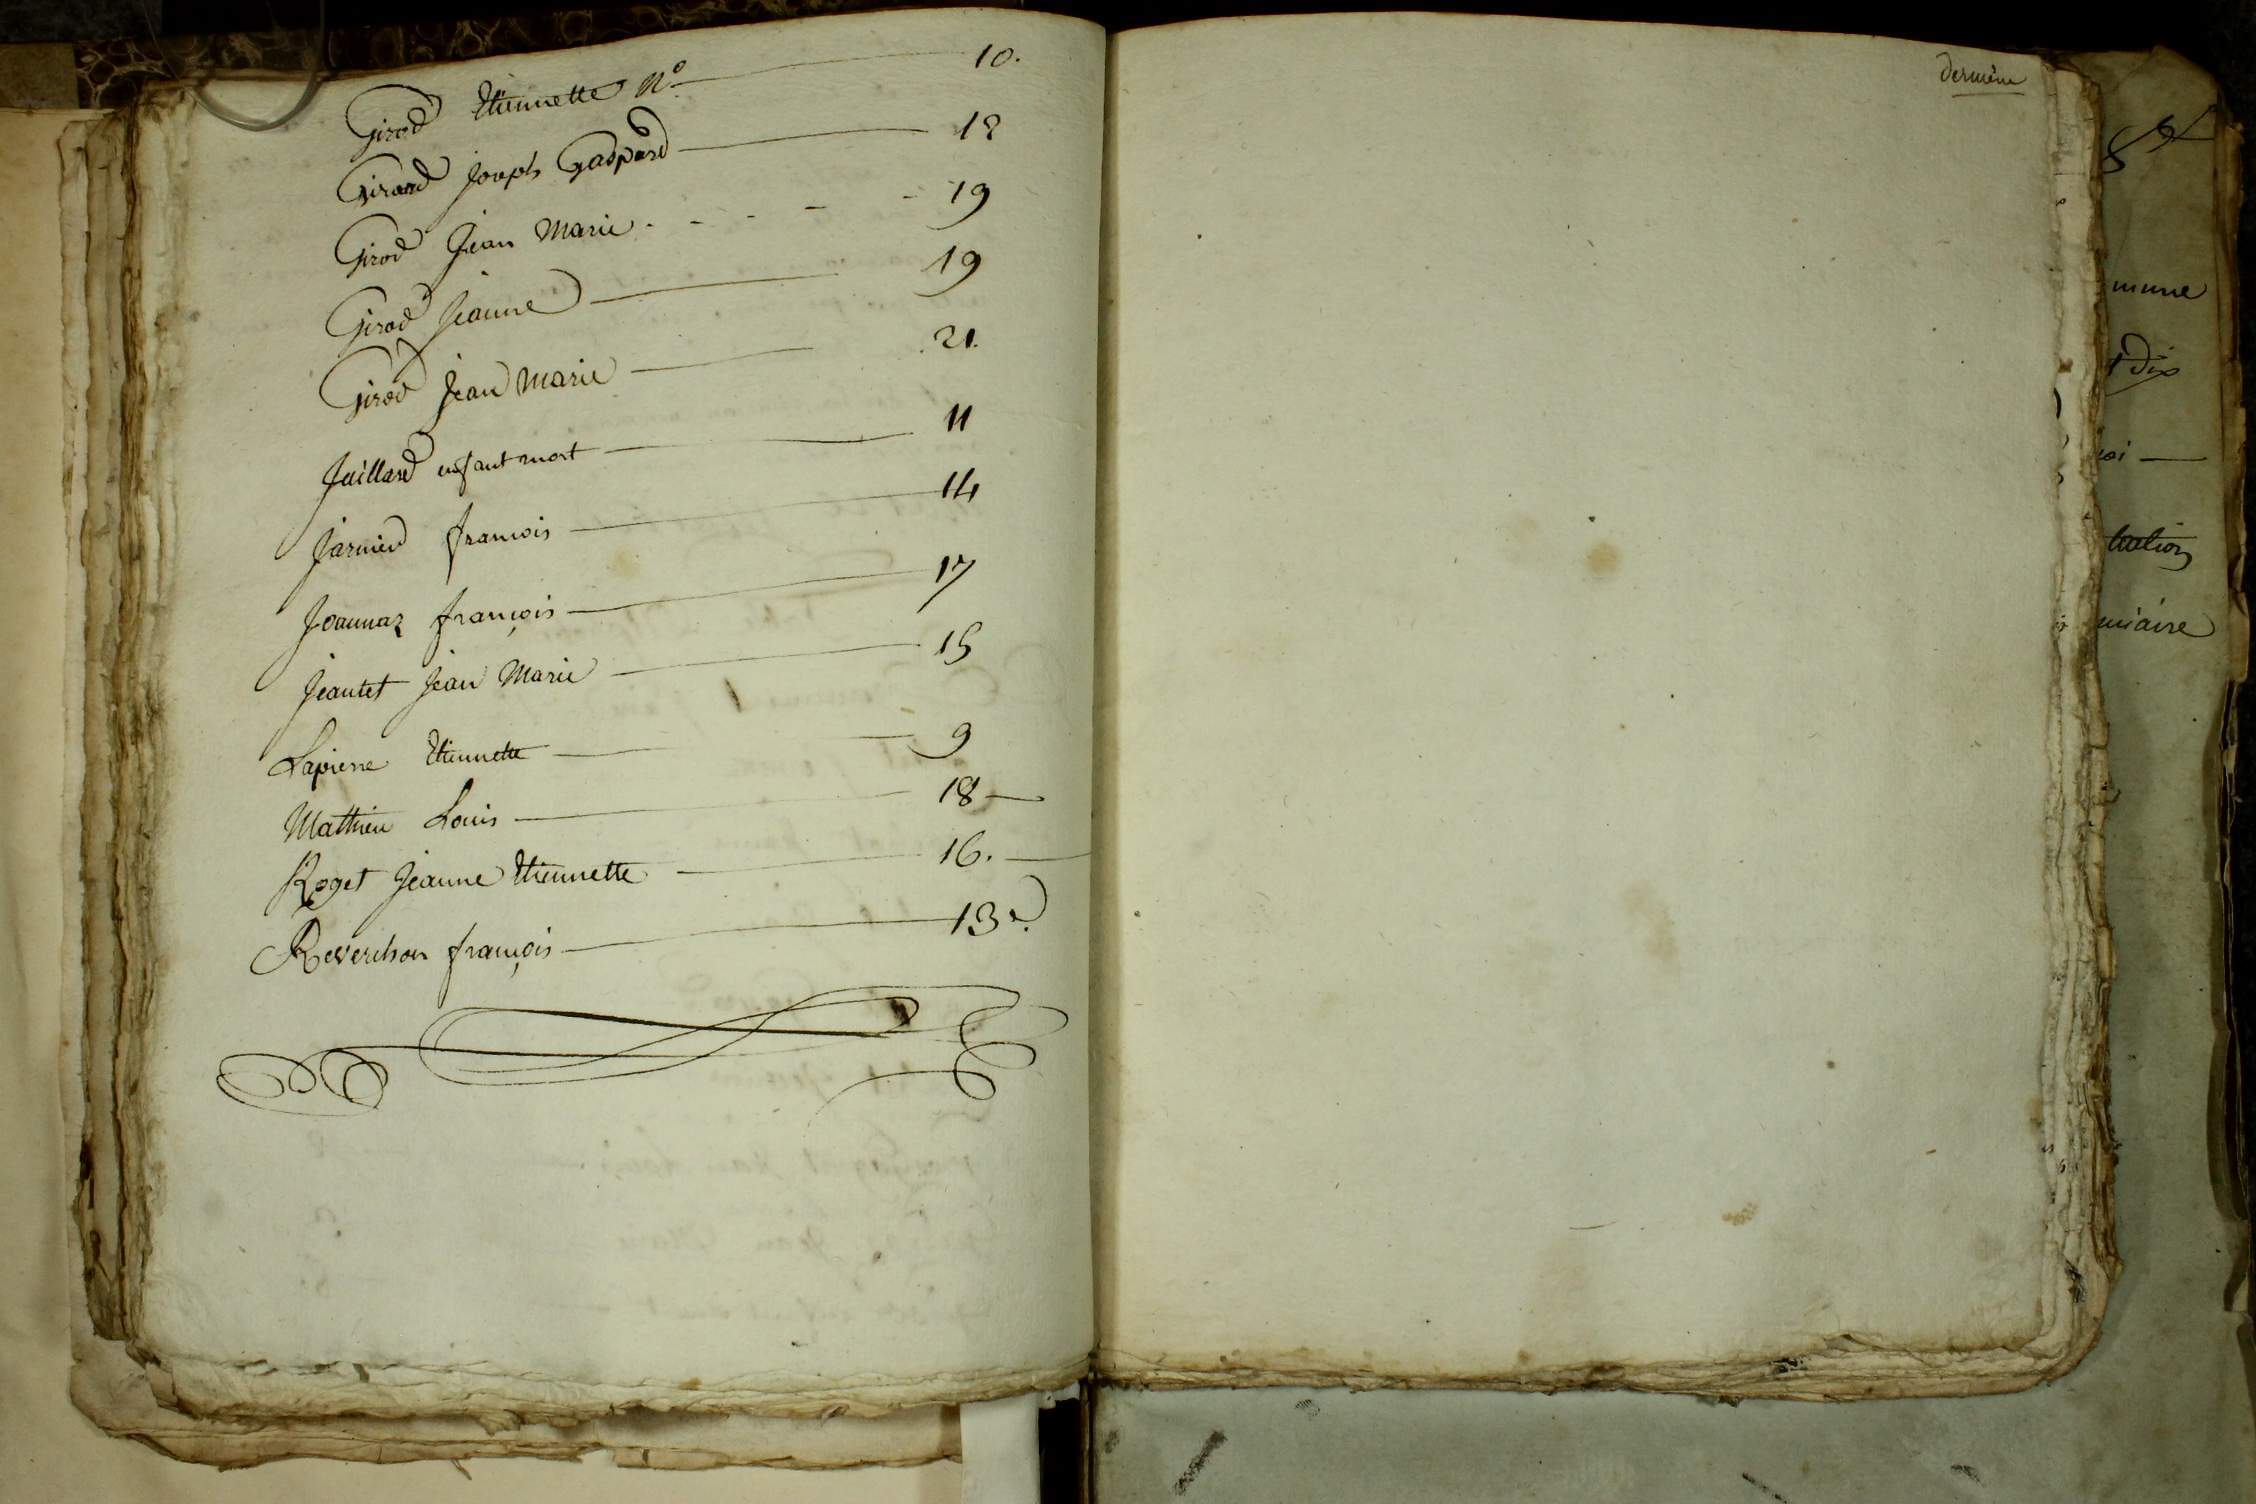 Girod Etiennette N° 10.
Girod Joseph Gaspard 12
Girod Jean Marie 19
Girod Jeanne 19
Girod Jean Marie 21.
Juillard enfant mort 11
Jarnier francois 14
Joannaz françois 17
Jeantet Jean Marie 15
Lapierre Etiennette 9
Mathieu Louis 18
Roget Jeanne Etiennette 16.
Reverchon françois 13.
dernière
mune
dix
miaire